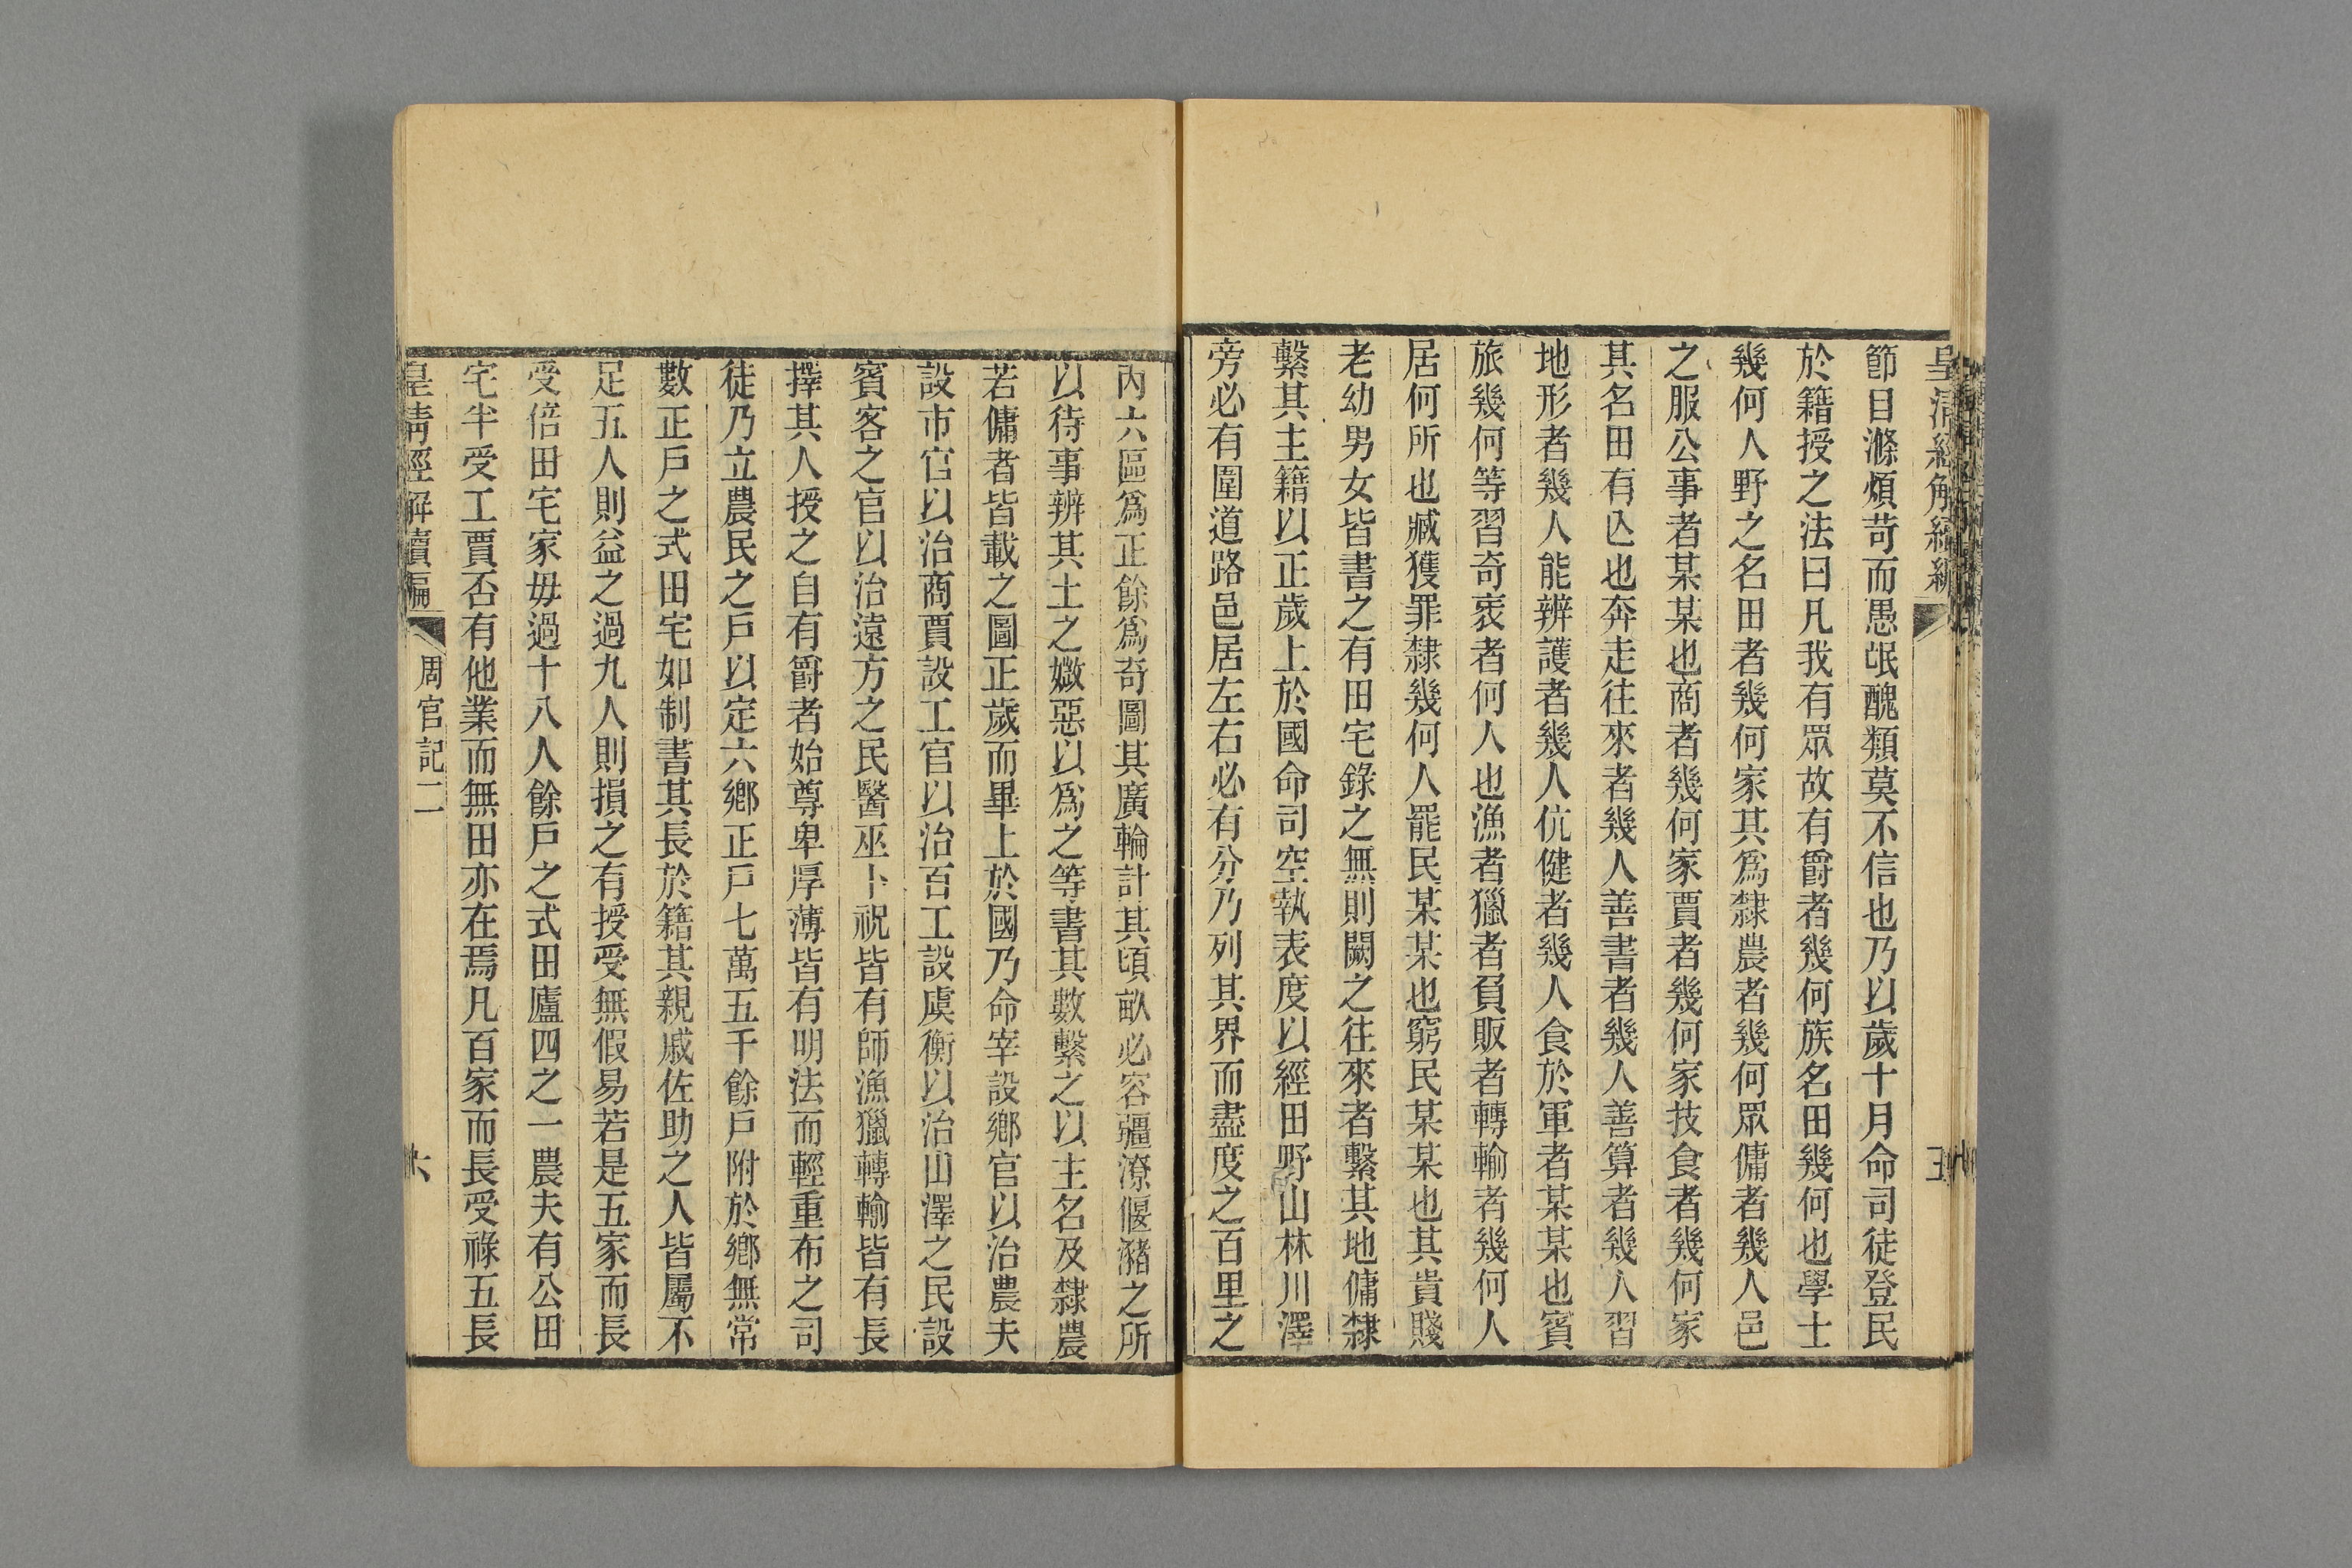 皇清經解續編
五
節目滌煩苛而愚氓醜類莫不信也乃以歲十月命司徒登民
於籍授之法曰凡我有眾故有爵者幾何族名田幾何也學士
幾何人野之名田者幾何家其爲隸農者幾何眾傭者幾人邑
之服公事者某某也商者幾何家賈者幾何家技食者幾何家
其名田有亾也奔走往來者幾人善書者幾人善算者幾人習
地形者幾人能辨護者幾人伉健者幾人食於軍者某某也賓
旅幾何等習奇衺者何人也漁者獵者負販者轉輸者幾何人
居何所也臧獲罪隸幾何人罷民某某也窮民某某也其貴賤
老幼男女皆書之有田宅錄之無則闕之往來者繫其地傭隸
繫其主籍以正歲上於國命司空執表度以經田野山林川澤
旁必有圍道路邑居左右必有分乃列其界而盡度之百里之
內六區爲正餘爲奇圖其廣輪計其頃畝必容疆潦偃豬之所
以待事辨其土之媺惡以爲之等書其數繫之以主名及隸農
若傭者皆載之圖正歲而畢上於國乃命宰設鄉官以治農夫
設市官以治商賈設工官以治百工設虞衡以治山澤之民設
賓客之官以治遠方之民醫巫卜祝皆有師漁獵轉輸皆有長
擇其人授之自有爵者始尊卑厚薄皆有明法而輕重布之司
徒乃立農民之戸以定六鄉正戸七萬五千餘戸附於鄉無常
數正戸之式田宅如制書其長於籍其親戚佐助之人皆屬不
足五人則益之過九人則損之有授受無假易若是五家而長
受倍田宅家毋過十八人餘戸之式田廬四之一農夫有公田
宅半受工賈否有他業而無田亦在焉凡百家而長受祿五長
皇清經解續編
周官記二
六